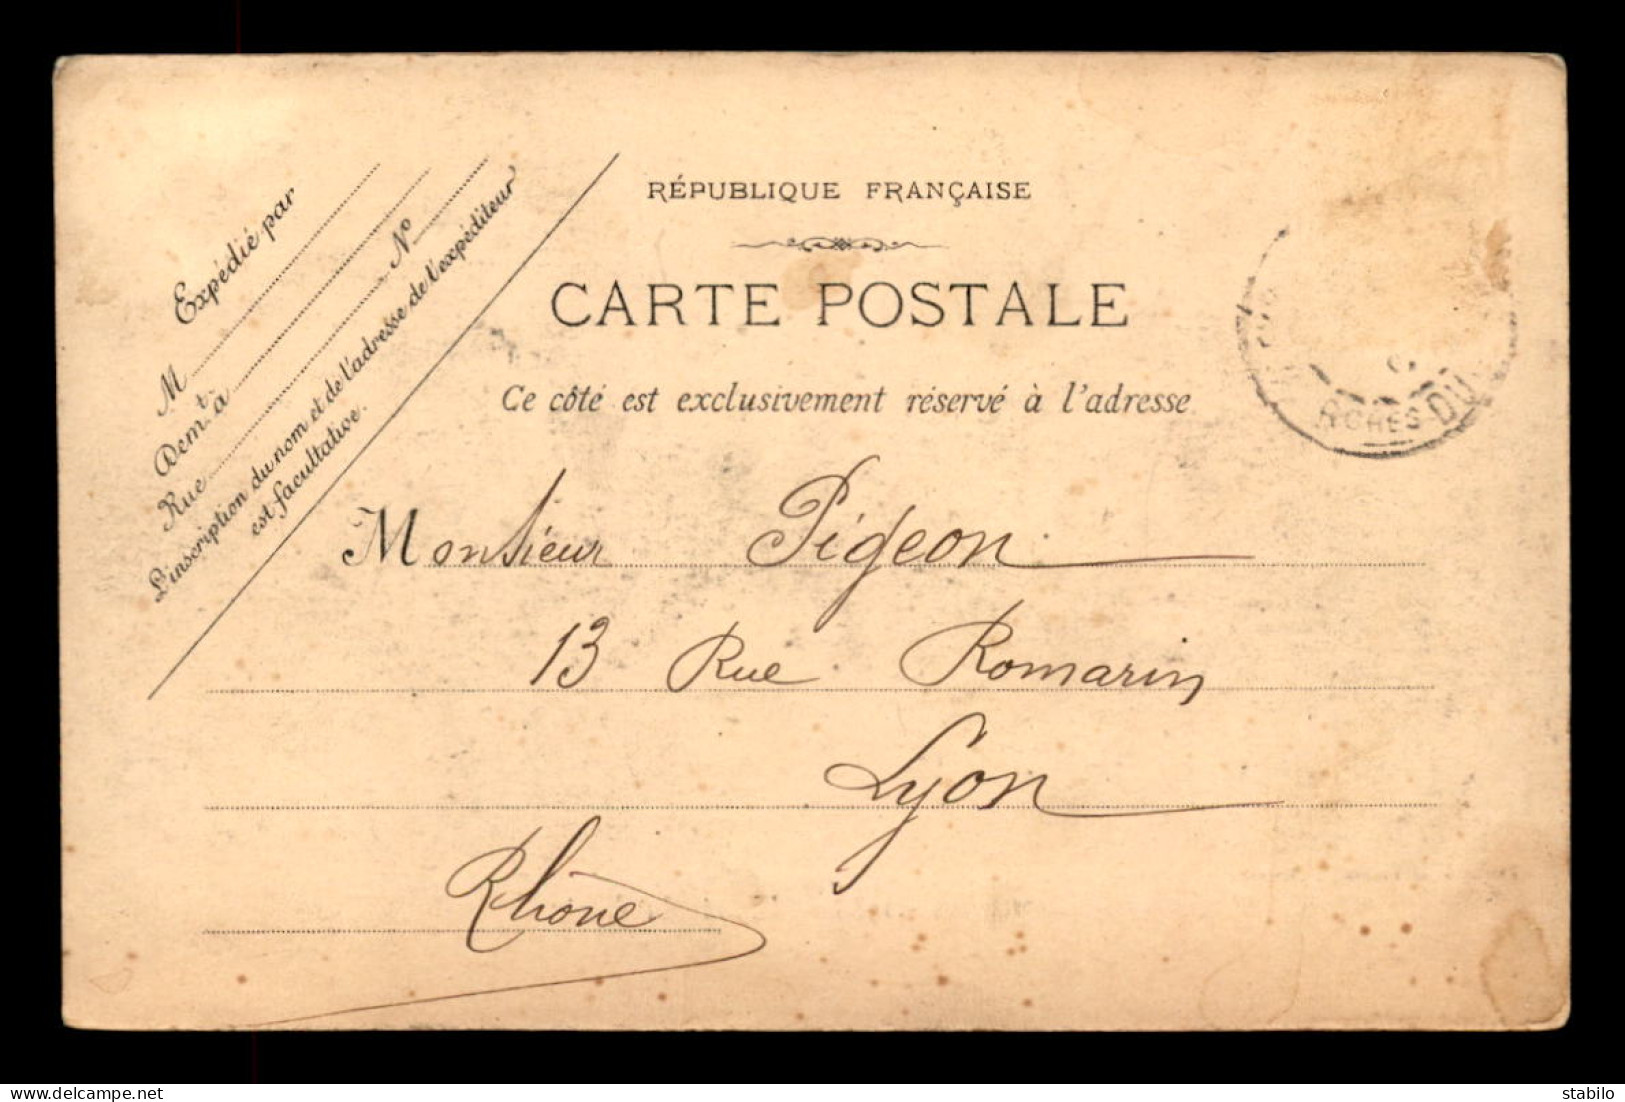 RÉPUBLIQUE FRANÇAISE
CARTE POSTALE
Ce côté est exclusivement réservé à l'adresse
Expédié par
M
Demt à
Rue N°
L'inscription du nom et de l'adresse de l'expéditeur
est facultative.
RCHES-DU
Monsieur Pigeon
13 Rue Romarin
Lyon
Rhône
delcampe.net
stabilo